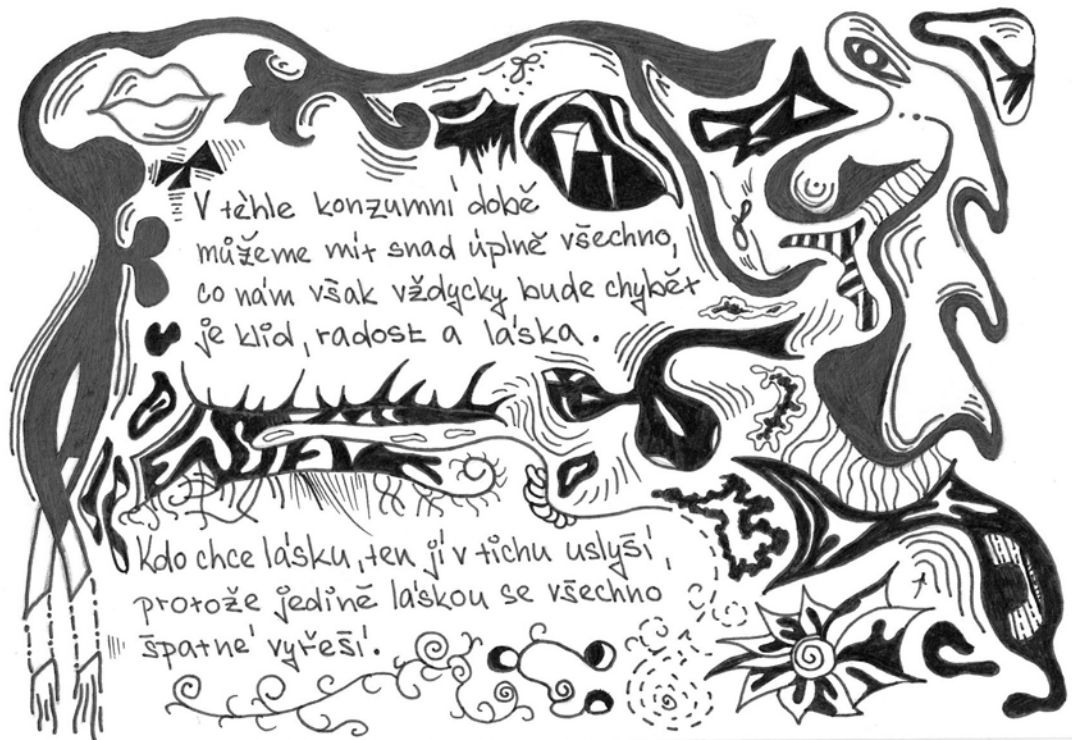 V těhle konzumní době
můžeme mít snad úplně všechno,
co nám však vždycky bude chybět
je klid, radost a láska.
Kdo chce lásku, ten jí v tichu uslyší,
protože jedině láskou se všechno
špatné vyřeší.